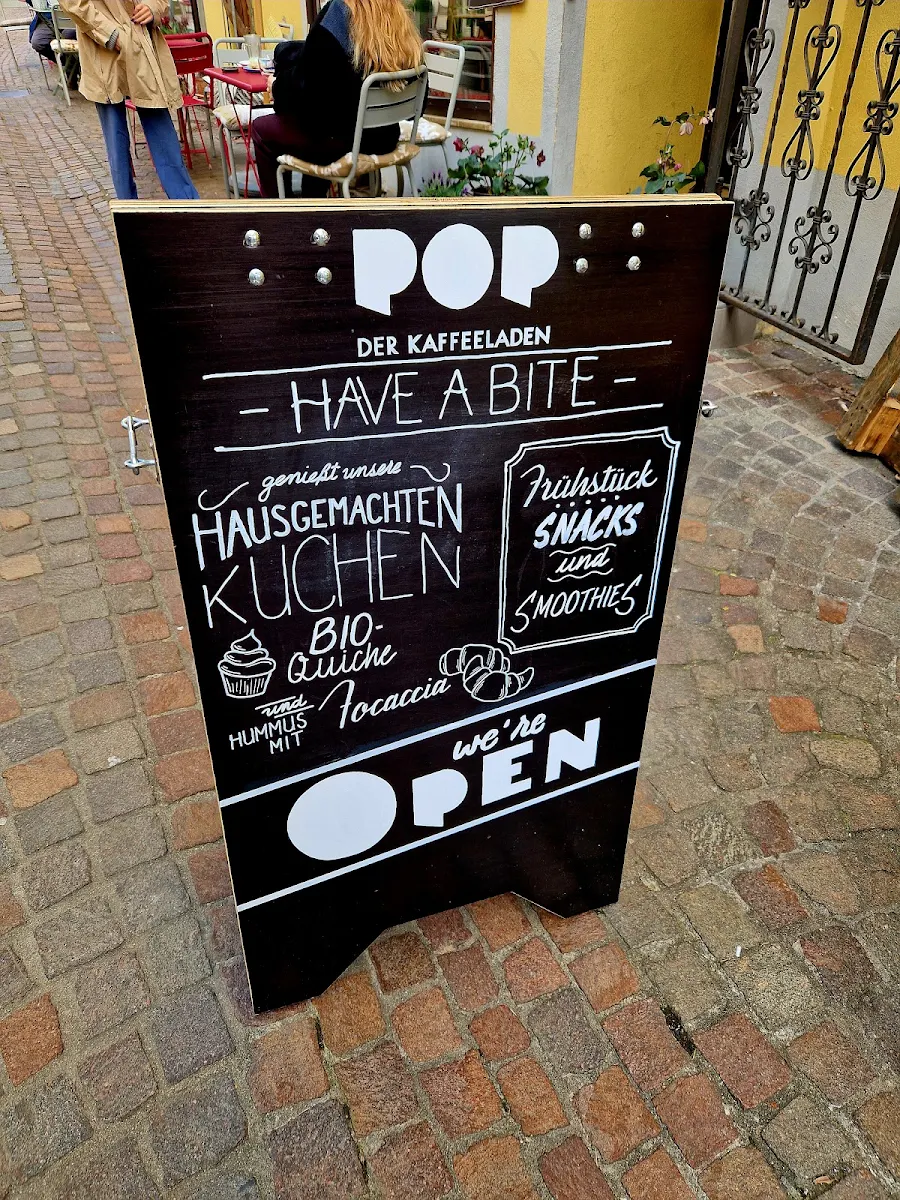 POP
DER KAFFEELADEN
- HAVE A BITE -
genießt unsere
HAUSGEMACHTEN
KUCHEN
BIO-
Quiche
und
HUMMUS
MIT
Focaccia
Frühstück
SNACKS
und
SMOOTHIES
we're
OPEN